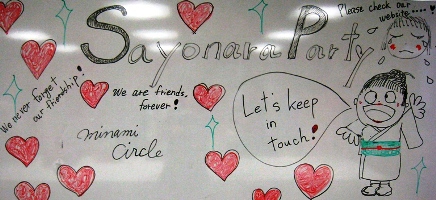 Sayonara Party
Please check our
website.....♥
We never forget
our friendship!
We are friends,
forever!
Let's keep
in
touch!
minami
Circle